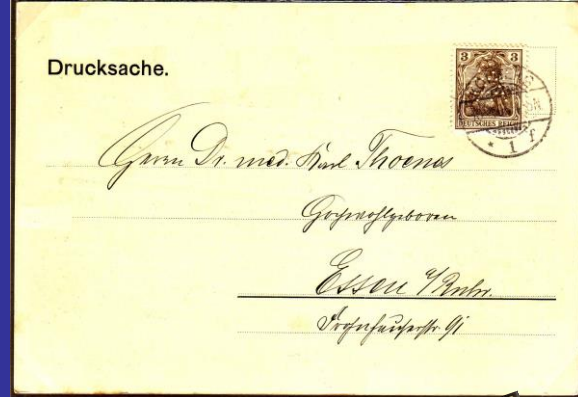 Drucksache.
3 3
DEUTSCHES REICH
* 1 f
Herrn Dr. med. Karl Thoenes
Hochwohlgeboren
Essen a/Ruhr.
Frohnhauserstr 91